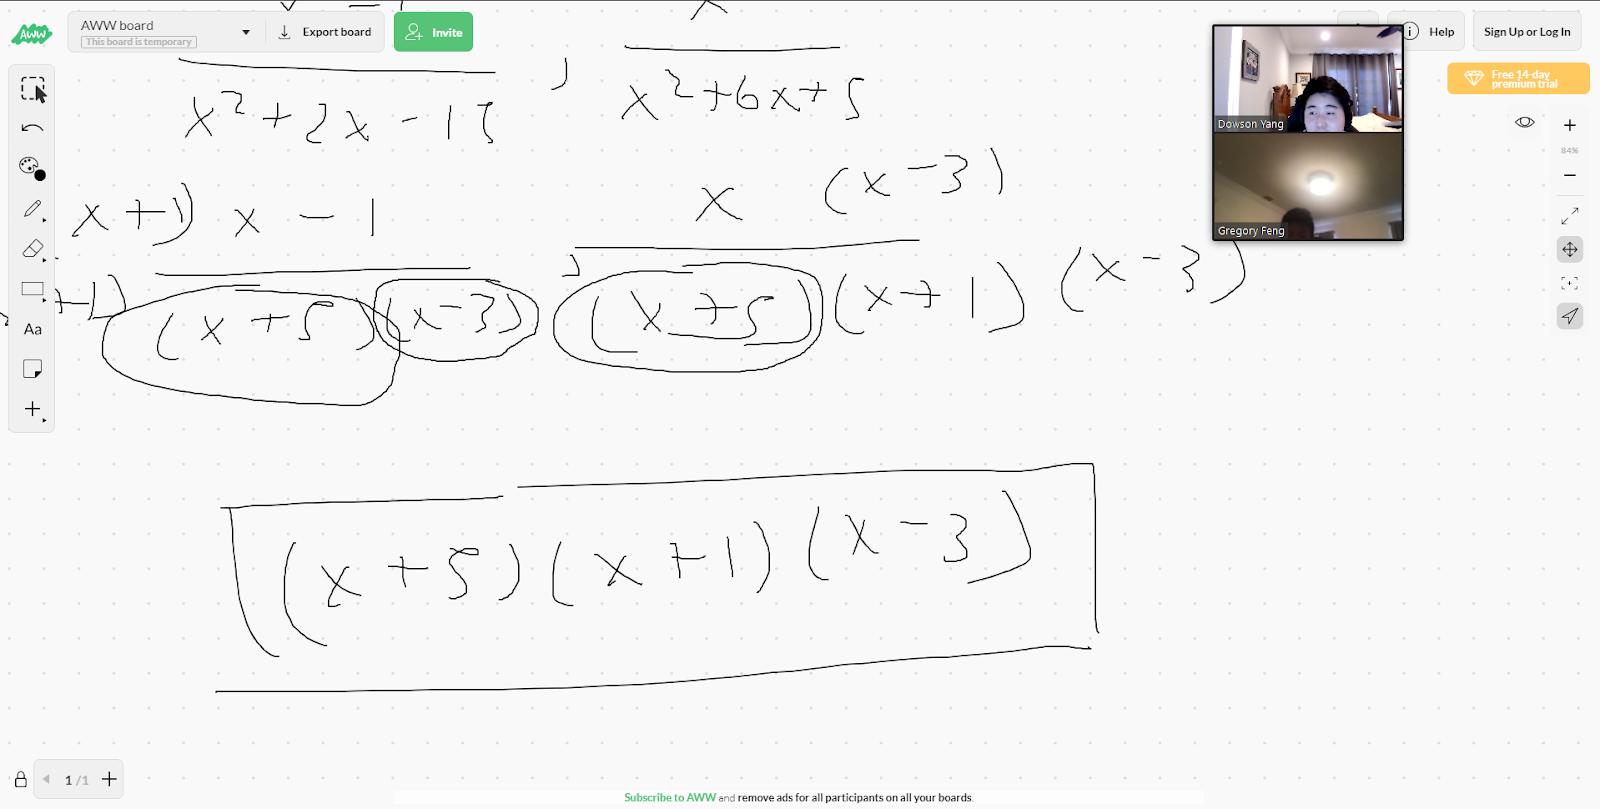 AWW
AWW board
This board is temporary
Export board
Invite
Help
Sign Up or Log In
Free 14-day
premium trial
84%
Dowson Yang
Gregory Feng
x
x² + 2x - 15
,
x² + 6x + 5
x + 1) x - 1
x (x - 3)
+ 1) (x + 5) (x - 3)
,
(x + 5) (x + 1) (x - 3)
(x + 5) (x + 1) (x - 3)
Aa
1 /1
Subscribe to AWW and remove ads for all participants on all your boards.